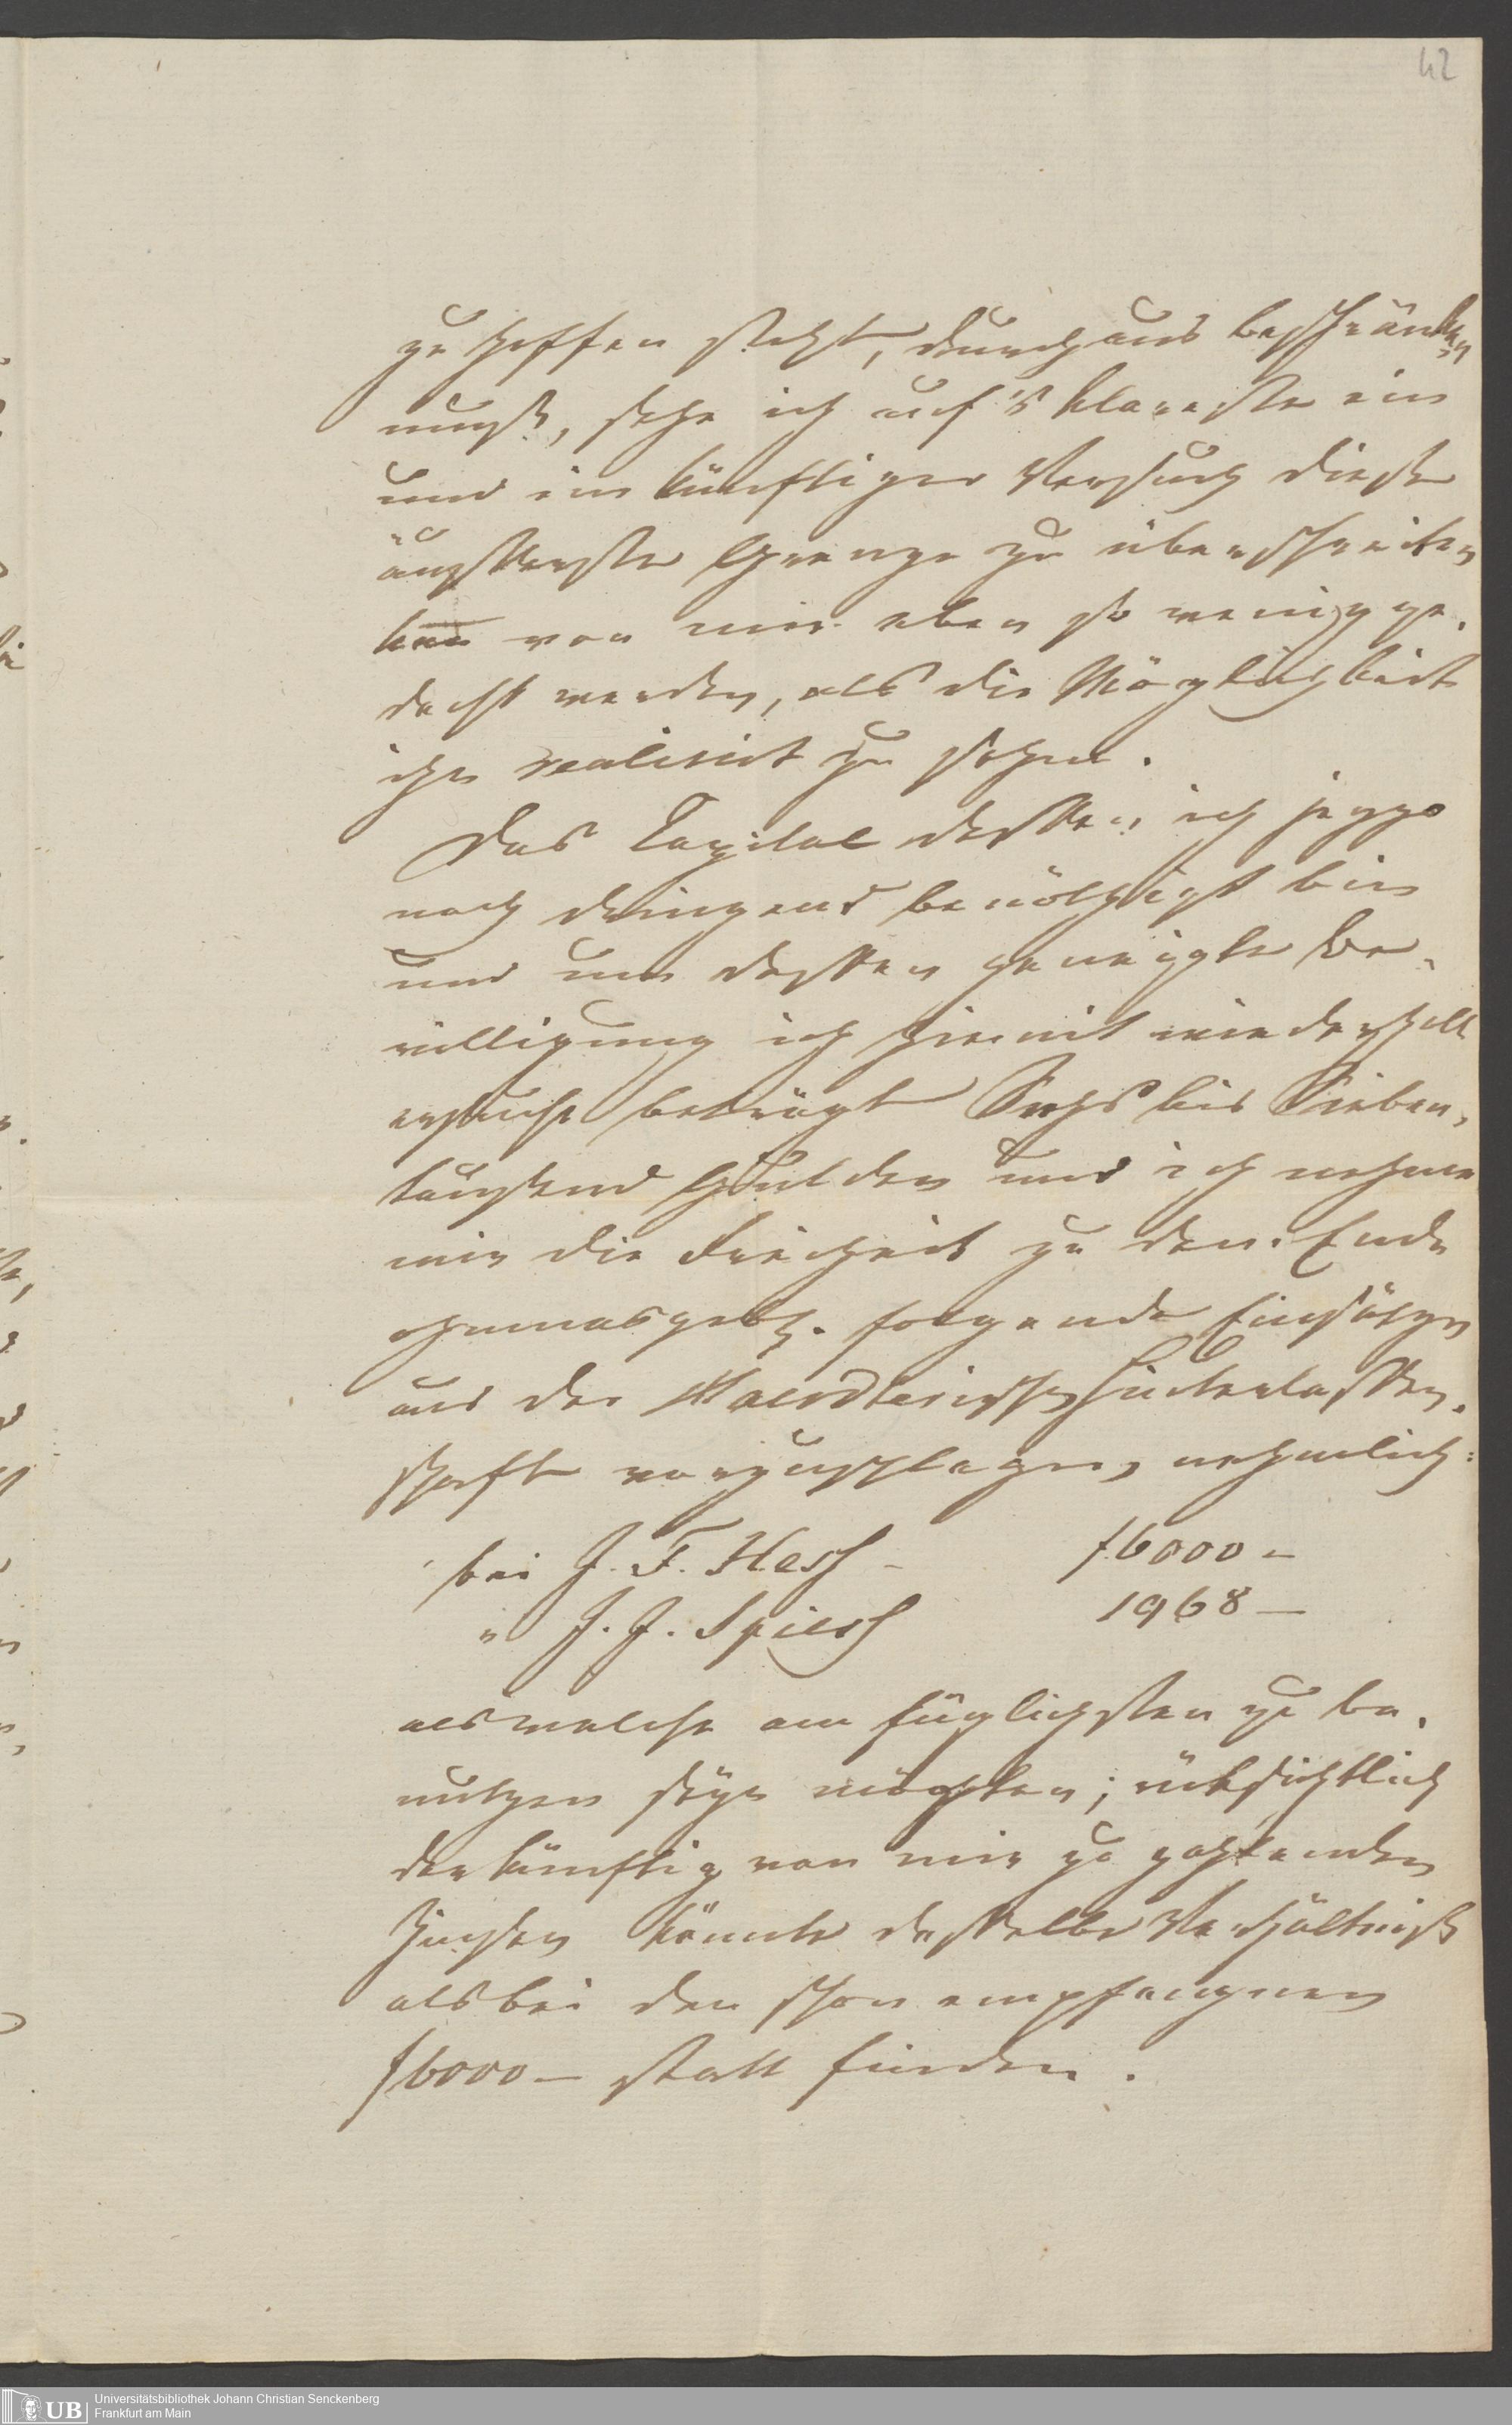 42
zu hoffen steht, durchaus beschränken
muß, sehe ich auf's klareste ein
und ein künftiger Versuch diese
äußerste Grenze zu überschreiten
kan von mir eben so wenig ge-
dacht werden, als die Möglichkeit
ihn realisirt zu sehen.
Das Capital dessen ich jezzo
noch dringend benöthigt bin
und um dessen geneigte Be-
willigung ich hiermit wiederholt
ersuche beträgt Sechs bis Sieben-
tausend Gulden und ich nehme
mir die Freiheit zu dem Ende
ohnmasgebl. folgende Einsätze
aus der Hinterlassen-
schaft vorzuschlagen, nehmlich:
bei J. F. Hess - f 6000 -
" J. J. Spiess 1968 -
als welche am füglichsten zu be-
nutzen seyn möchten; rüksichtlich
der künftig von mir zu zahlenden
Zinsen könnte dasselbe Verhältniß
als bei den schon empfangnen
f 6000 - statt finden.
UB
Universitätsbibliothek Johann Christian Senckenberg
Frankfurt am Main